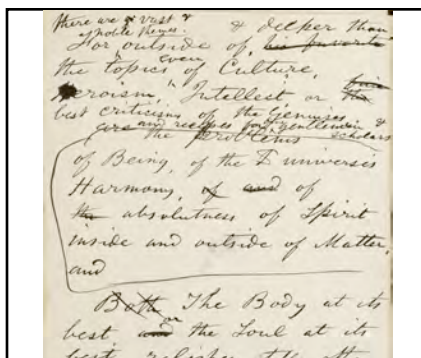 there are vast &
noble themes. & deeper than
For outside of, his favorite
the "topics even of Culture,
Heroism," Intellect or
best criticisms of the Geniuses
are and recipes for gentlemen &
the problems scholars
of Being, of the universes
Harmony, of and of
the absolutness of Spirit
inside and outside of Matter,
and
Both The Body at its
best and or the Soul at its
best